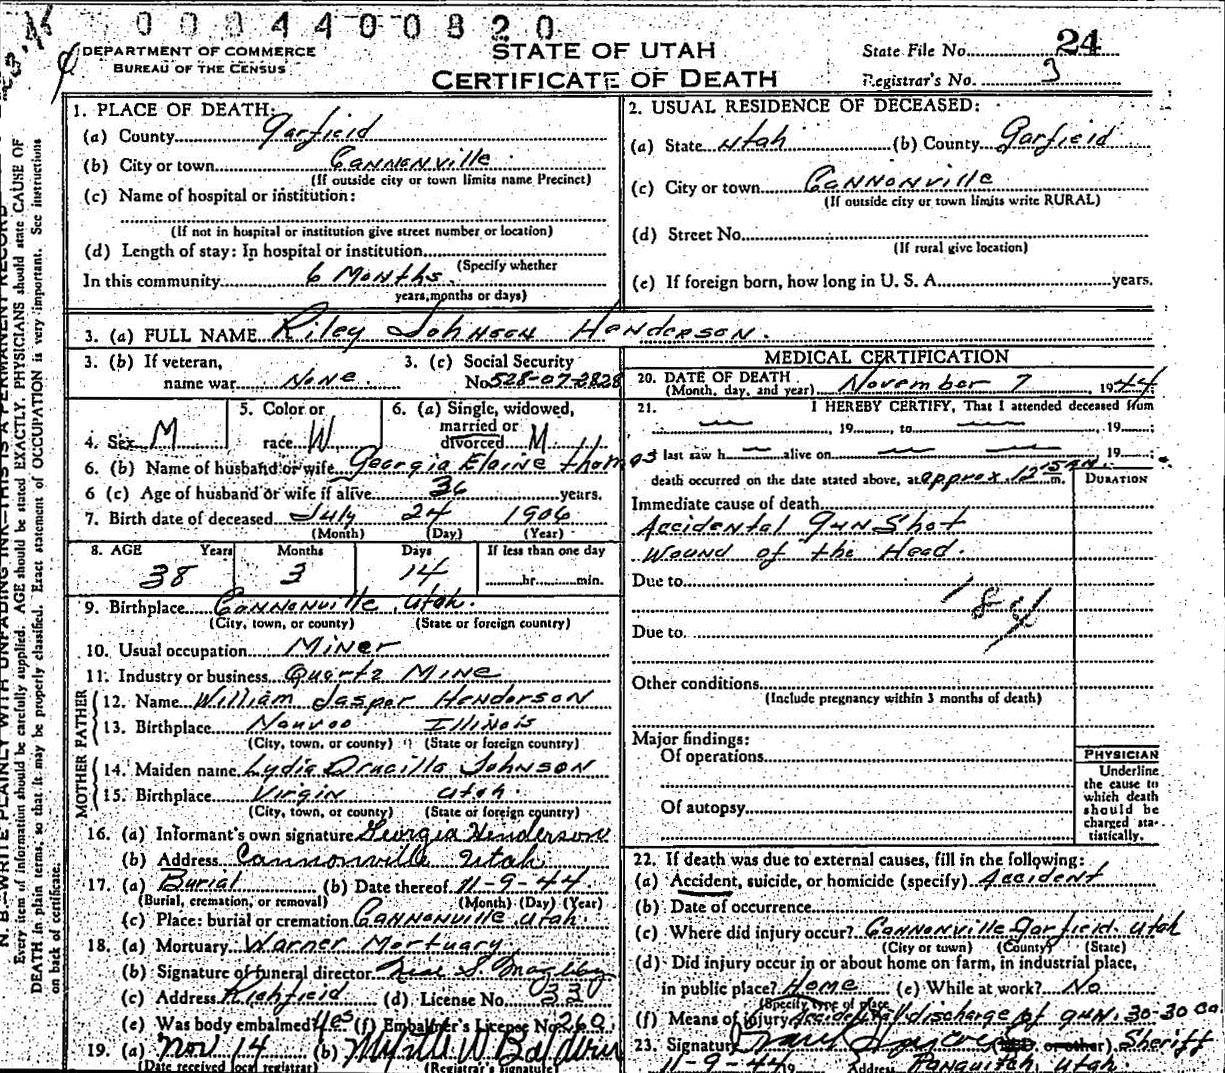 0 0 0 4 4 0 0 8 2 0
DEPARTMENT OF COMMERCE
BUREAU OF THE CENSUS
STATE OF UTAH
CERTIFICATE OF DEATH
State File No. 24
Registrar's No. 3
N. B.—WRITE PLAINLY WITH UNFADING INK—THIS IS A PERMANENT RECORD
Every item of information should be carefully supplied. AGE should be stated EXACTLY. PHYSICIANS should state CAUSE OF
DEATH in plain terms, so that it may be properly classified. Exact statement of OCCUPATION is very important. See instructions
on back of certificate.
1. PLACE OF DEATH:
(a) County Garfield
(b) City or town Cannonville
(If outside city or town limits name Precinct)
(c) Name of hospital or institution:
(If not in hospital or institution give street number or location)
(d) Length of stay: In hospital or institution
(Specify whether
In this community 6 Months.
years, months or days)
2. USUAL RESIDENCE OF DECEASED:
(a) State Utah (b) County Garfield
(c) City or town Cannonville
(If outside city or town limits write RURAL)
(d) Street No.
(If rural give location)
(e) If foreign born, how long in U. S. A. years.
3. (a) FULL NAME Riley Johnson Henderson.
3. (b) If veteran, 3. (c) Social Security
name war None. No. 528-07-2828
4. Sex M 5. Color or race W 6. (a) Single, widowed, married or divorced M
6. (b) Name of husband or wife Georgia Elaine Thomas
6 (c) Age of husband or wife if alive 36 years.
7. Birth date of deceased July 24 1906
(Month) (Day) (Year)
8. AGE Years Months Days If less than one day
38 3 14 hr. min.
9. Birthplace Cannonville, Utah.
(City, town, or county) (State or foreign country)
10. Usual occupation Miner
11. Industry or business Quartz Mine
FATHER
12. Name William Jasper Henderson
13. Birthplace Nauvoo Illinois
(City, town, or county) (State or foreign country)
MOTHER
14. Maiden name Lydia Drucilla Johnson
15. Birthplace Virgin Utah.
(City, town, or county) (State or foreign country)
16. (a) Informant's own signature Georgia Henderson
(b) Address Cannonville Utah.
17. (a) Burial (b) Date thereof 11-9-44.
(Burial, cremation, or removal) (Month) (Day) (Year)
(c) Place: burial or cremation Cannonville, Utah.
18. (a) Mortuary Warner Mortuary
(b) Signature of funeral director Neal S.
(c) Address Richfield (d) License No. 330
(e) Was body embalmed? Yes (f) Embalmer's License No. 260
19. (a) Nov 14 (b) Myrtle W
(Date received local registrar) (Registrar's signature)
MEDICAL CERTIFICATION
20. DATE OF DEATH
(Month, day, and year) November 7 1944
21. I HEREBY CERTIFY, That I attended deceased from
, 19 , to , 19 ;
last saw h alive on 19 ;
death occurred on the date stated above, at approx 12 15 m.
DURATION
Immediate cause of death
Accidental Gun Shot
Wound of the Head.
Due to
184
Due to
Other conditions
(Include pregnancy within 3 months of death)
Major findings:
Of operations
Of autopsy
PHYSICIAN
Underline
the cause to
which death
should be
charged sta-
tistically.
22. If death was due to external causes, fill in the following:
(a) Accident, suicide, or homicide (specify) Accident
(b) Date of occurrence
(c) Where did injury occur? Cannonville Garfield. Utah
(City or town) (County) (State)
(d) Did injury occur in or about home on farm, in industrial place,
in public place? Home (e) While at work? No
(Specify type of place
(f) Means of injury Accidental discharge of gun. 30-30 Ca
23. Signature (M.D. or other) Sheriff
11-9-44 19 Address Panguitch, Utah.